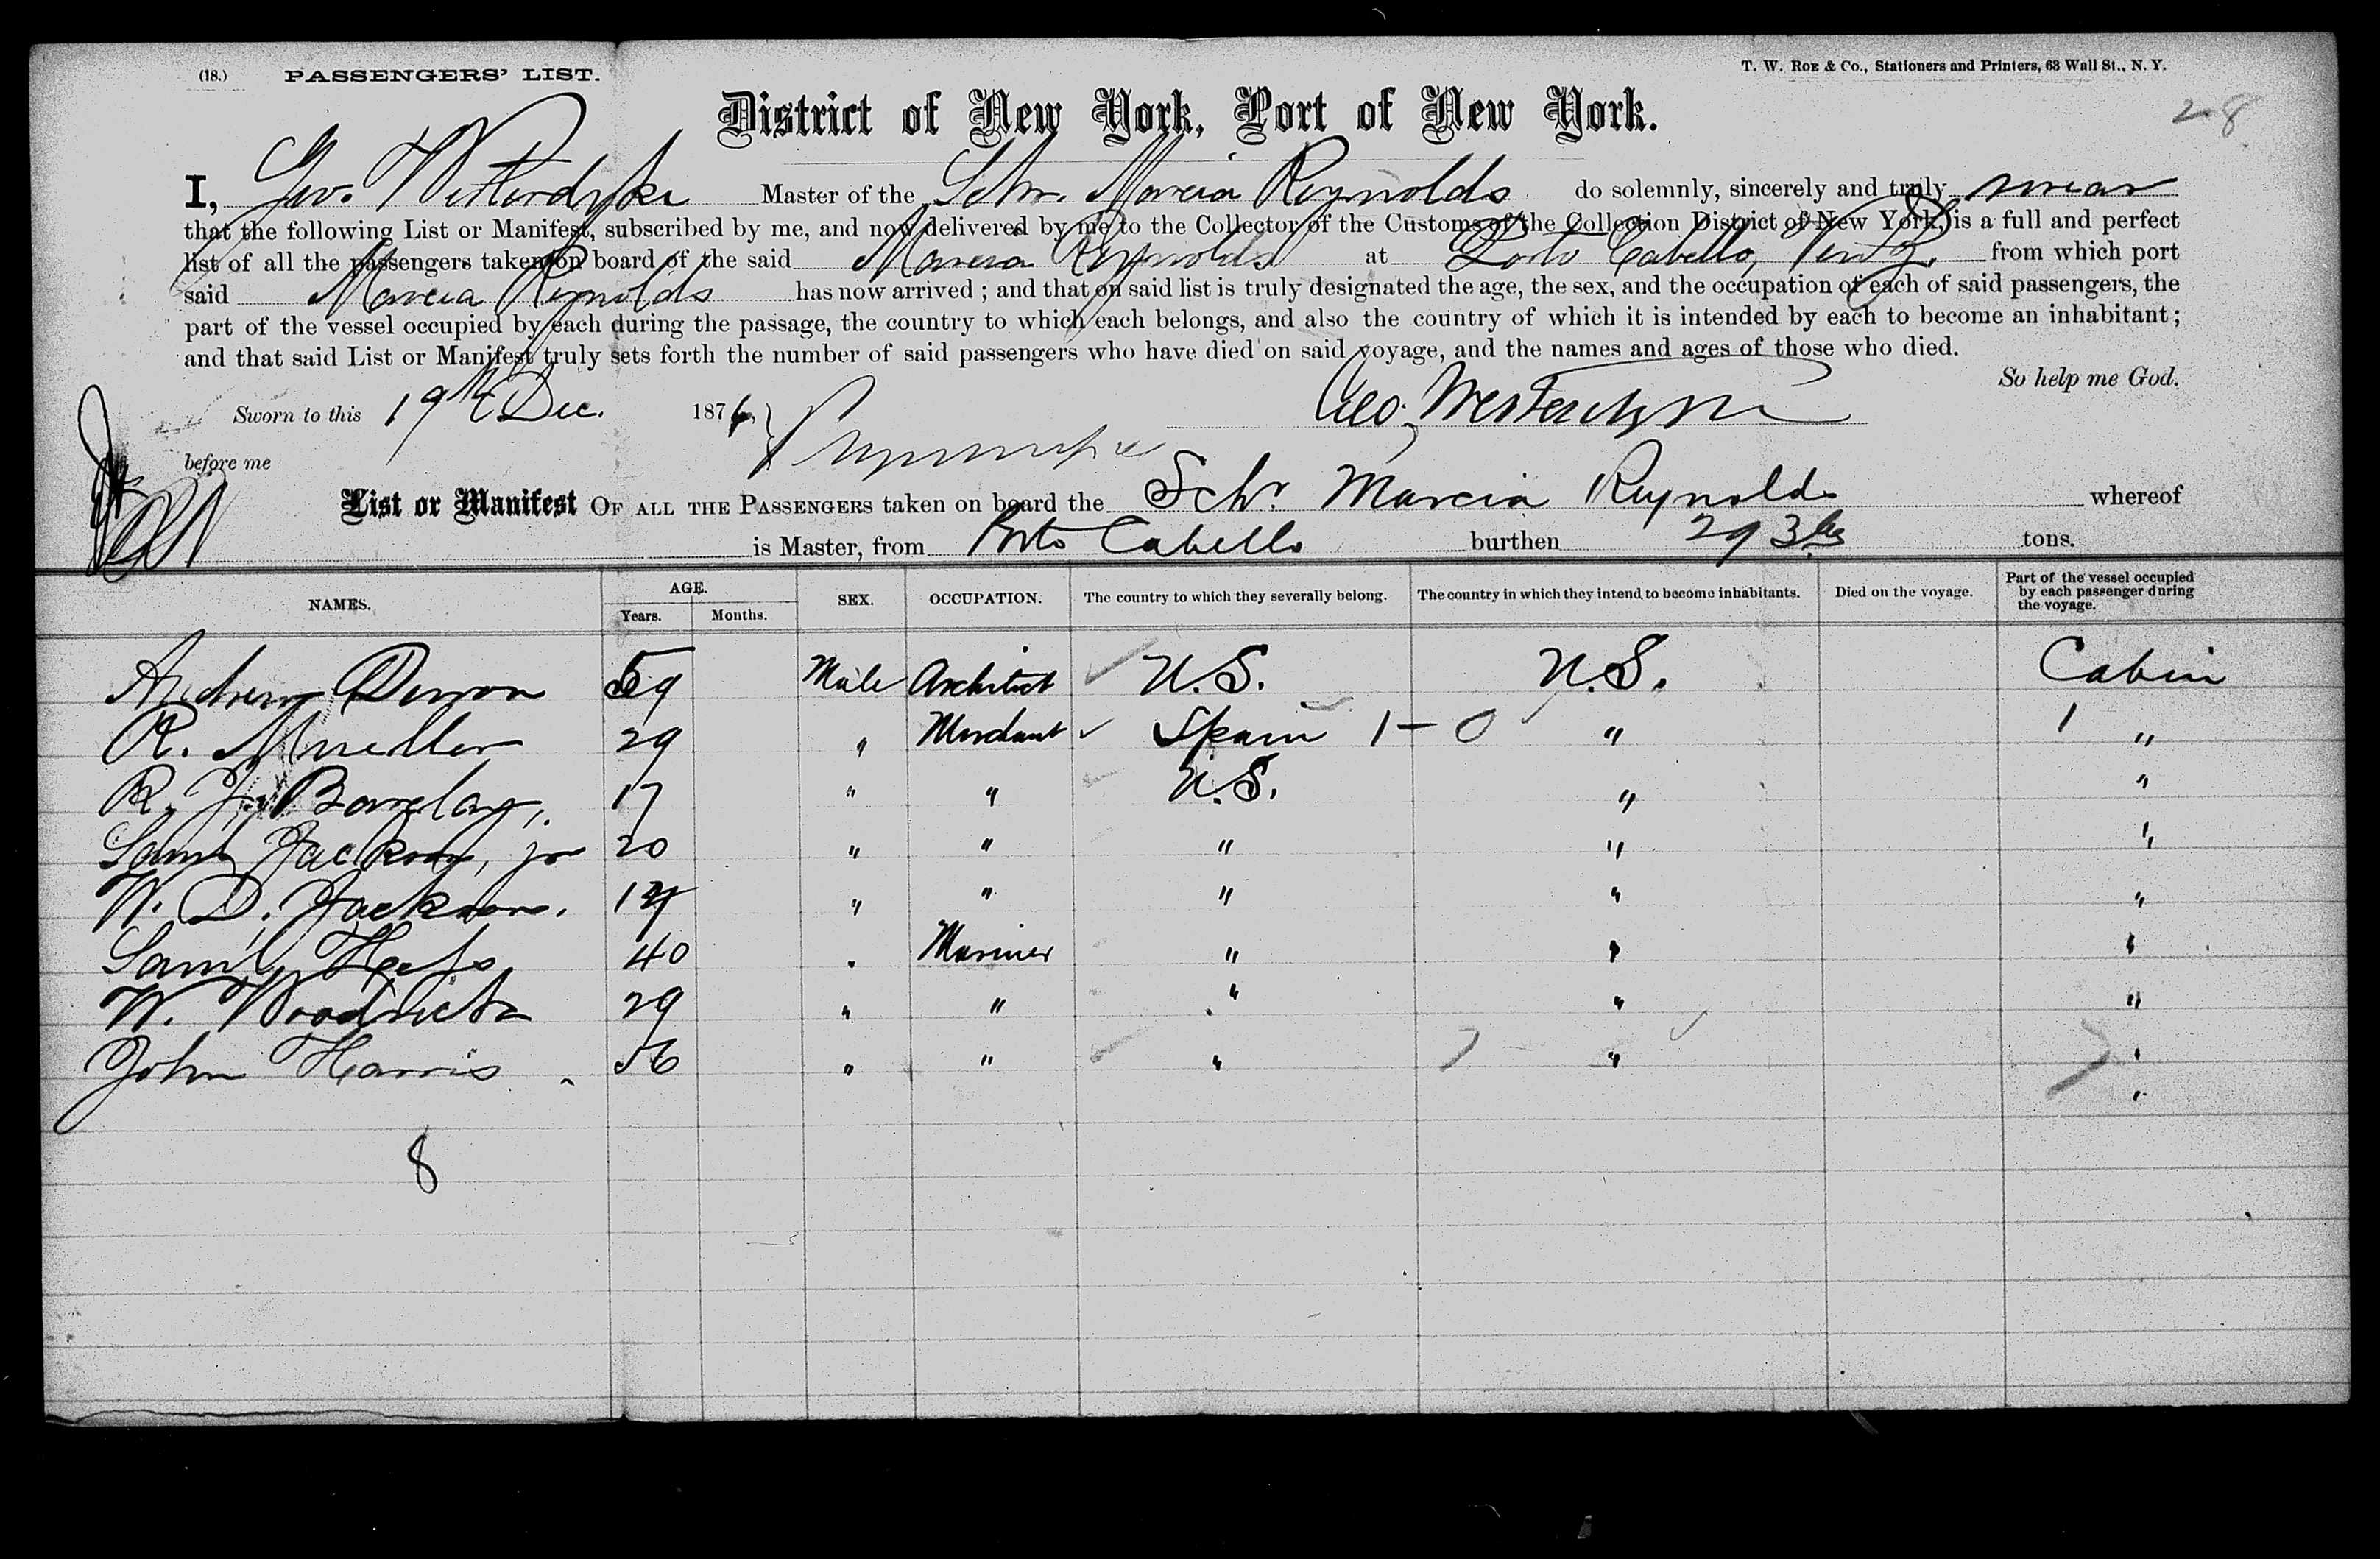 (18.) PASSENGERS' LIST.
T. W. ROE & Co., Stationers and Printers, 63 Wall St., N. Y.
28
District of New York, Port of New York.
I, Geo. Master of the Schr. Marcia Reynolds do solemnly, sincerely and truly swear
that the following List or Manifest, subscribed by me, and now delivered by me to the Collector of the Customs of the Collection District of New York, is a full and perfect
list of all the passengers taken on board of the said Marcia Reynolds at Porto Cabello, from which port
said Marcia Reynolds has now arrived ; and that on said list is truly designated the age, the sex, and the occupation of each of said passengers, the
part of the vessel occupied by each during the passage, the country to which each belongs, and also the country of which it is intended by each to become an inhabitant ;
and that said List or Manifest truly sets forth the number of said passengers who have died on said voyage, and the names and ages of those who died.
So help me God.
Sworn to this 19th Dec. 1876 Geo.
before me
List or Manifest OF ALL THE PASSENGERS taken on board the Schr Marcia Reynolds whereof
is Master, from Porto Cabello burthen 293 tons.
NAMES. AGE. Years. Months. SEX. OCCUPATION. The country to which they severally belong. The country in which they intend to become inhabitants. Died on the voyage. Part of the vessel occupied by each passenger during the voyage.
Andrew 59 Male Architect U.S. U.S. Cabin
R. Mueller 29 " Merchant Spain 1 - 0 " 1 "
R. J. Barclay, 17 " " U.S. " "
Saml Jackson, jr 20 " " " " "
W. D. Jackson. " " " " "
Saml 40 " Mariner " " "
W. 29 " " " " "
John Harris 56 " " " " "
"
8